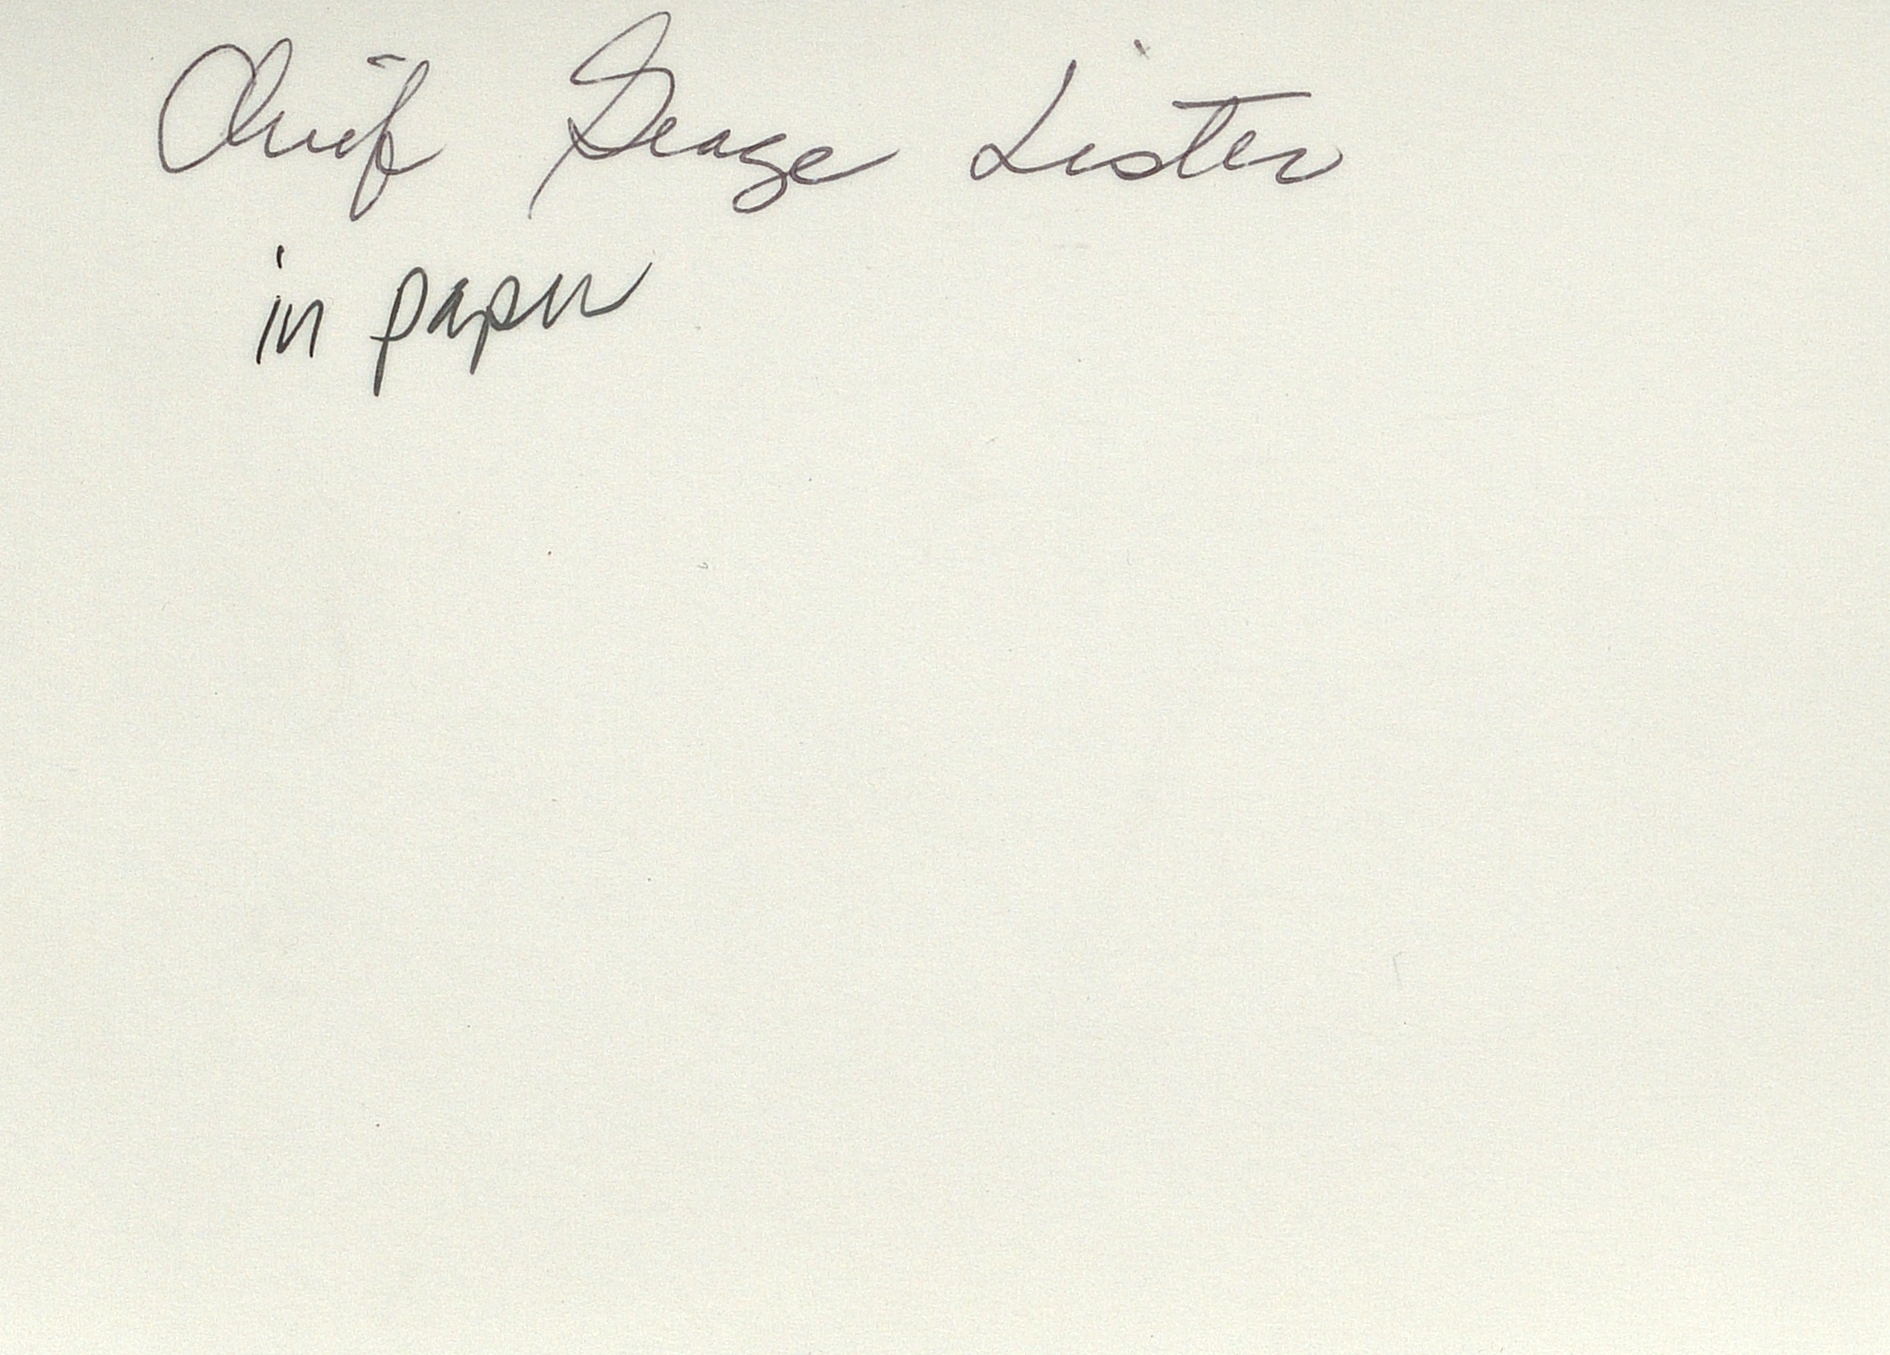 Chief George Lister
in paper